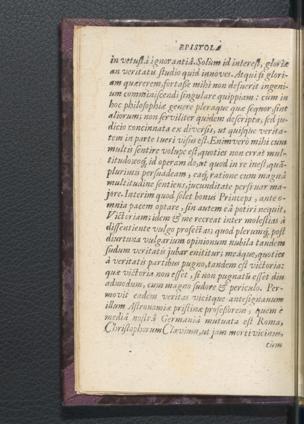 EPISTOLA
in vetustâ ignorantiâ. Solùm id interest, gloriæ
an veritatis studio quid innoves. Atqui si glori-
am quærerem, fortasse mihi non defuerit ingeni-
um comminiscendi singulare quippiam: cum in
hoc philosophiæ genere pleraque quæ sequor, sint
aliorum; non serviliter quidem descripta, sed ju-
dicio concinnata ex diversis, ut quisque verita-
tem in parte tueri visus est. Enimverò mihi cum
multis sentire volupe est, quoties non erret mul-
titudo: eoq́; id operam do, ut quod in re inest, quã-
plurimis persuadeam, eaq́; ratione cum magnâ
multitudine sentiens, jucunditate persruar ma-
jore. Interim quod solet bonus Princeps, ante o-
mnia pacem optare, sin autem eâ potiri nequit,
Victoriam; idem & me recreat inter molestias à
dissentiente vulgo profectas: quod plerumq́; post
diurtuna vulgarium opinionum nubila tandem
sudum veritatis jubar enititur: meáque, quoties
à veritatis partibus pugno, tandem est victoria:
quæ victoria non esset, si non pugnatũ esset diu
admodum, cum magno sudore & periculo. Per-
movit eadem veritas vicitque antesignanum
illum Astronomiæ pristinæ professorem, quem è
mediâ nostrâ Germaniâ mutuata est Roma,
Christophorum Clavium, ut jam morti vicinus,
cùm